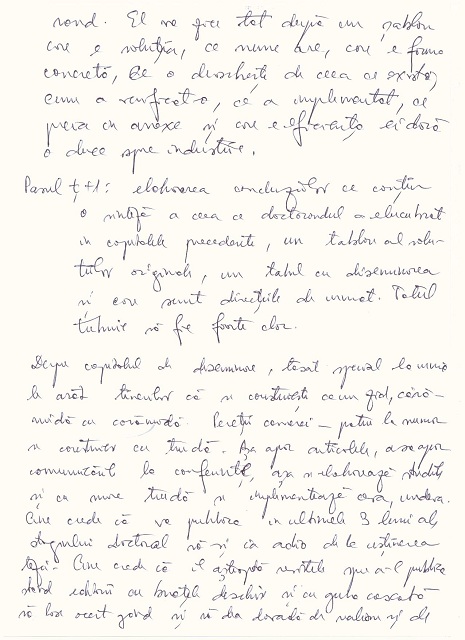 rând. El va face tot după un șablon
care e soluția, ce nume are, care e forma
concretă, ce o deosebește de ceea ce există,
cum a verificat-o, ce a implementat, ce
piesa cu anexe și care e eficiența ei dacă
o duce spre industrie.
Pasul t+1: elaborarea concluziilor ce conțin
o sinteză a ceea ce doctorandul a elucubrat
in capitolele precedente, un tablou al solu-
țiilor originale, un tabel cu diseminarea
și care sunt direcțiile de urmat. Totul
trebuie să fie foarte clar.
Despre capitolul de diseminare, lăsat special la urmă
le arăt tinerilor că se construiește ca un zid, cără-
midă cu cărămidă. Pereții camerei – patru la număr
se construiesc cu trudă. Așa apar articolele, așa apar
comunicările la conferințe, așa se elaborează studiile
și cu mare trudă se implementează ceva, undeva.
Cine crede că va publica in ultimele 3 luni ale
stagiului doctoral să-și ia adio de la susținerea
tezei. Cine crede că îl așteaptă revistele spre a-l publica
stând editorii cu brațele deschise și cu gura cascată
să lase acest gând și să dea dovadă de realism și de